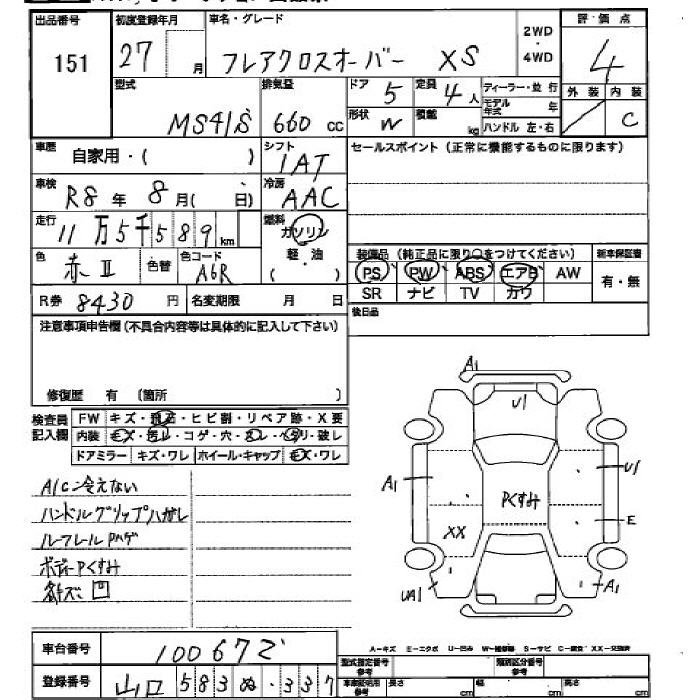 出品番号 初度登録年月 車名・グレード 2WD・4WD 評価点
151 27月 フレアクロスオーバー XS 4
型式 排気量 ドア 5 定員 4人 ディーラー・並行 外装 内装
MS41S 660cc 形状 W 積載 kg モデル年式 年 C
ハンドル 左・右
車歴 自家用・( ) シフト IAT セールスポイント(正常に機能するものに限ります)
車検 R8年8月( 日) 冷房 AAC
走行 11万5千589km 燃料 ガソリン
軽・油
( )
色 赤II 色替 色コード A6R 装備品(純正品に限り○をつけてください) 新車保証書
PS PW ABS エアB AW 有・無
R券 8430円 名変期限 月 日 SR ナビ TV カワ
注意事項申告欄(不具合内容等は具体的に記入して下さい) 後日品
修復歴 有 (箇所 )
検査員記入欄 FW キズ・飛石・ヒビ割・リペア跡・X要
内装 キズ・汚レ・コゲ・穴・スレ・ヘタリ・破レ
ドアミラー キズ・ワレ ホイール・キャップ キズ・ワレ
A1
U1
A1 U1
Pくすみ
E
XX
UA1 A1
A/C冷えない
ハンドルグリップハガレ
ルーフレールPハゲ
ボディーPくすみ
凹
A-キズ E-エクボ U-凹み S-サビ
車台番号 100672
登録番号 山口 583 ぬ ・337
型式指定番号 参考 類別区分番号 参考
長さ cm 幅 cm 高さ cm